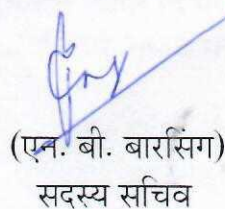 (एन. बी. बारसिंग)
सदस्य सचिव